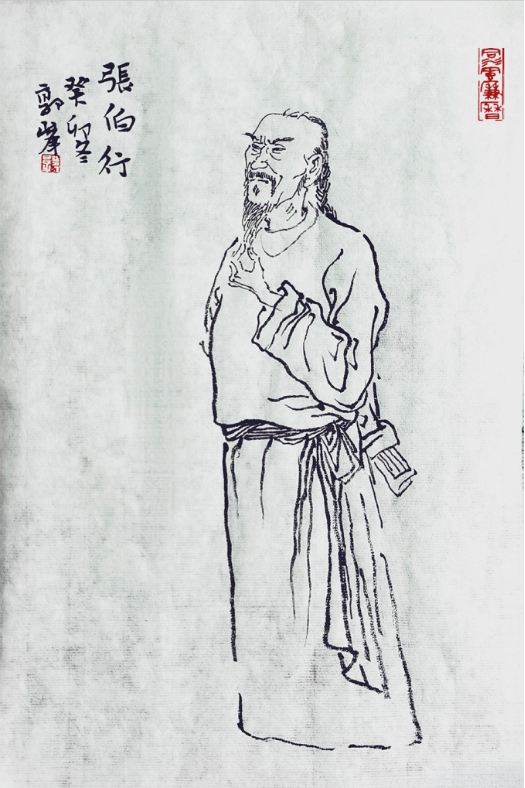 張伯行
癸卯冬
郭峰